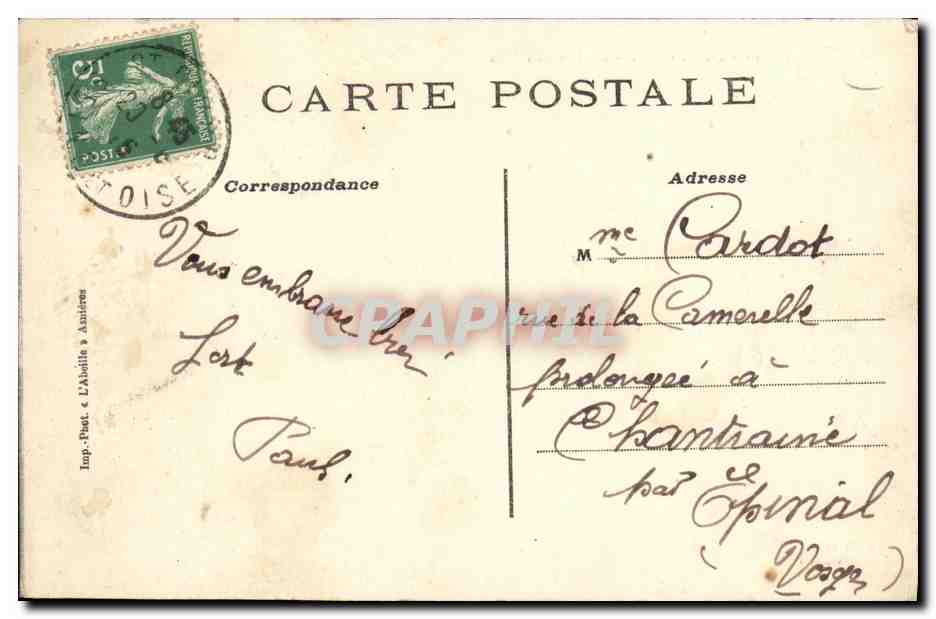 CARTE POSTALE
Correspondance
Vous embrasse très
fort
Paul.
Imp.-Phot. « L'Abeille » Asnières
Adresse
Mme Cardot
rue de la Camerelle
prolongée à
Chantraine
par Épinal
(Vosges)
5c
REPUBLIQUE FRANÇAISE
POSTES
OISE
CPAPHIL